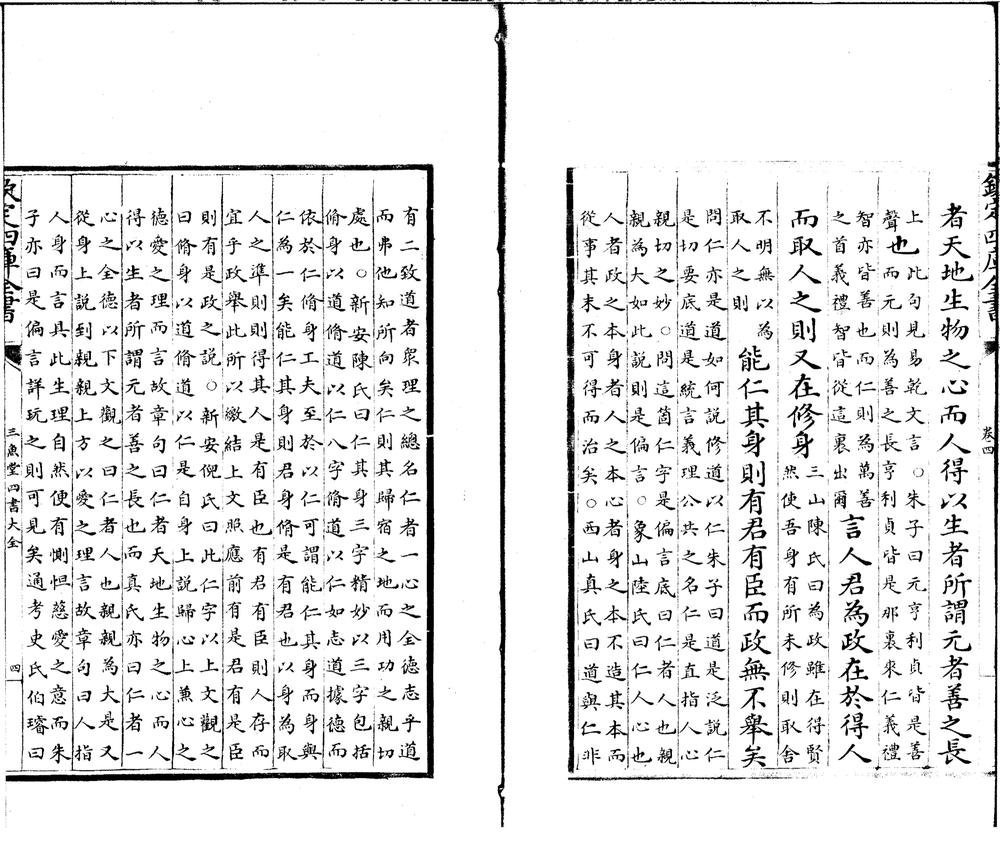 者天地生物之心而人得以生者所謂元者善之長
上此句見易乾文言○朱子曰元亨利貞皆是善
聲也而元則為善之長亨利貞皆是那裏來仁義禮
智亦皆善也而仁則為萬善
之首義禮智皆從這裏出爾言人君為政在於得人
而取人之則又在修身三山陳氏曰為政雖在得賢
然使吾身有所未修則取舍
不明無以為
取人之則能仁其身則有君有臣而政無不舉矣
問仁亦是道如何說修道以仁朱子曰道是泛說仁
是切要底道是統言義理公共之名仁是直指人心
親切之妙○問這箇仁字是偏言底曰仁者人也親
親為大如此說則是偏言○象山陸氏曰仁人心也
人者政之本身者人之本心者身之本不造其本而
從事其末不可得而治矣○西山真氏曰道與仁非
卷四
有二致道者衆理之總名仁者一心之全德志乎道
而弗他知所向矣仁則其歸宿之地而用功之親切
處也○新安陳氏曰仁其身三字精妙以三字包括
脩身以道脩道以仁八字脩道以仁如志道據德而
依於仁脩身工夫至於以仁可謂能仁其身而身與
仁為一矣能仁其身則君身脩是有君也以身為取
人之準則則得其人是有臣也有君有臣則人存而
宜乎政舉此所以繳結上文照應前有是君有是臣
則有是政之說○新安倪氏曰此仁字以上文觀之
曰脩身以道脩道以仁是自身上說歸心上兼心之
德愛之理而言故章句曰仁者天地生物之心而人
得以生者所謂元者善之長也而真氏亦曰仁者一
心之全德以下文觀之曰仁者人也親親為大是又
從身上說到親親上方以愛之理言故章句曰人指
人身而言具此生理自然便有惻怛慈愛之意而朱
子亦曰是偏言詳玩之則可見矣通考史氏伯璿曰
欽定四庫全書
三魚堂四書大全
四